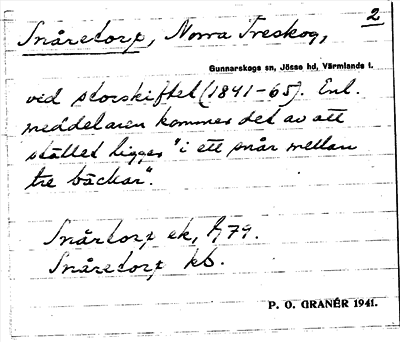 2
Snåretorp, Norra Treskog,
Gunnarskogs sn, Jösse hd, Värmlands l.
ved storskiftet (1841-65). Enl.
meddelaren kommer det av att
stället ligger "i ett snår mellan
tre bäckar".
Snårtorp ek, A79.
Snåretorp kb.
P. O. GRANÉR 1941.